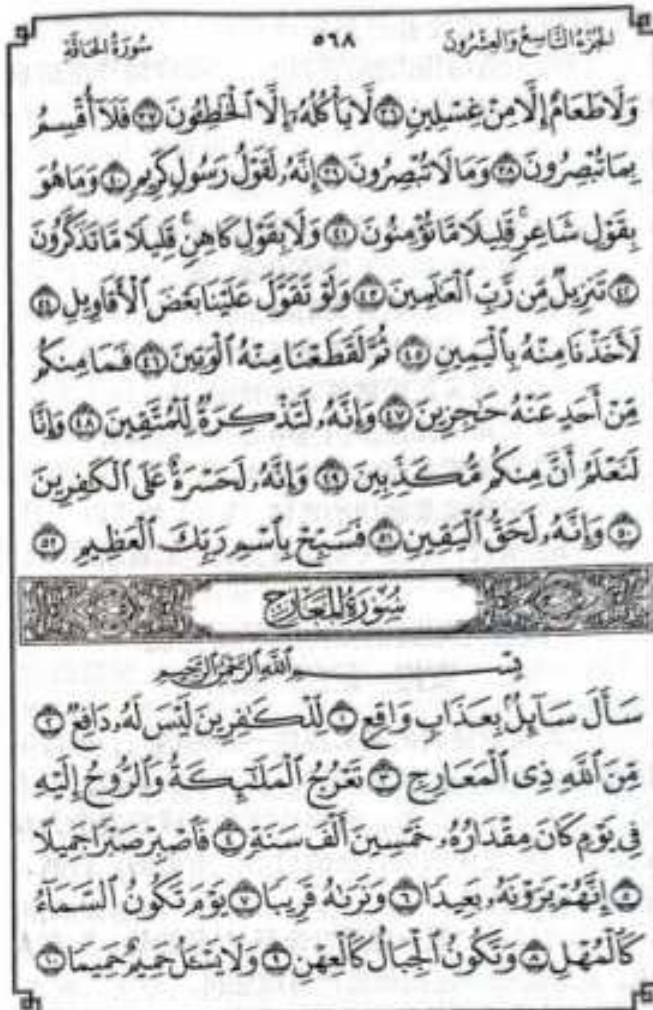 الجزء التاسع والعشرون ٥٦٨ سورة الحاقة
وَلَا طَعَامٌ إِلَّا مِنْ غِسْلِينٍ ٣٦ لَّا يَأْكُلُهُۥٓ إِلَّا ٱلْخَٰطِـُٔونَ ٣٧ فَلَآ أُقْسِمُ
بِمَا تُبْصِرُونَ ٣٨ وَمَا لَا تُبْصِرُونَ ٣٩ إِنَّهُۥ لَقَوْلُ رَسُولٍ كَرِيمٍ ٤٠ وَمَا هُوَ
بِقَوْلِ شَاعِرٍ ۚ قَلِيلًا مَّا تُؤْمِنُونَ ٤١ وَلَا بِقَوْلِ كَاهِنٍ ۚ قَلِيلًا مَّا تَذَكَّرُونَ
٤٢ تَنزِيلٌ مِّن رَّبِّ ٱلْعَٰلَمِينَ ٤٣ وَلَوْ تَقَوَّلَ عَلَيْنَا بَعْضَ ٱلْأَقَاوِيلِ ٤٤
لَأَخَذْنَا مِنْهُ بِٱلْيَمِينِ ٤٥ ثُمَّ لَقَطَعْنَا مِنْهُ ٱلْوَتِينَ ٤٦ فَمَا مِنكُم
مِّنْ أَحَدٍ عَنْهُ حَٰجِزِينَ ٤٧ وَإِنَّهُۥ لَتَذْكِرَةٌ لِّلْمُتَّقِينَ ٤٨ وَإِنَّا
لَنَعْلَمُ أَنَّ مِنكُم مُّكَذِّبِينَ ٤٩ وَإِنَّهُۥ لَحَسْرَةٌ عَلَى ٱلْكَٰفِرِينَ
٥٠ وَإِنَّهُۥ لَحَقُّ ٱلْيَقِينِ ٥١ فَسَبِّحْ بِٱسْمِ رَبِّكَ ٱلْعَظِيمِ ٥٢
سورة المعارج
بِسْمِ ٱللَّهِ ٱلرَّحْمَٰنِ ٱلرَّحِيمِ
سَأَلَ سَآئِلٌۢ بِعَذَابٍ وَاقِعٍ ١ لِّلْكَٰفِرِينَ لَيْسَ لَهُۥ دَافِعٌ ٢
مِّنَ ٱللَّهِ ذِى ٱلْمَعَارِجِ ٣ تَعْرُجُ ٱلْمَلَٰٓئِكَةُ وَٱلرُّوحُ إِلَيْهِ
فِى يَوْمٍ كَانَ مِقْدَارُهُۥ خَمْسِينَ أَلْفَ سَنَةٍ ٤ فَٱصْبِرْ صَبْرًا جَمِيلًا
٥ إِنَّهُمْ يَرَوْنَهُۥ بَعِيدًا ٦ وَنَرَىٰهُ قَرِيبًا ٧ يَوْمَ تَكُونُ ٱلسَّمَآءُ
كَٱلْمُهْلِ ٨ وَتَكُونُ ٱلْجِبَالُ كَٱلْعِهْنِ ٩ وَلَا يَسْـَٔلُ حَمِيمٌ حَمِيمًا ١٠